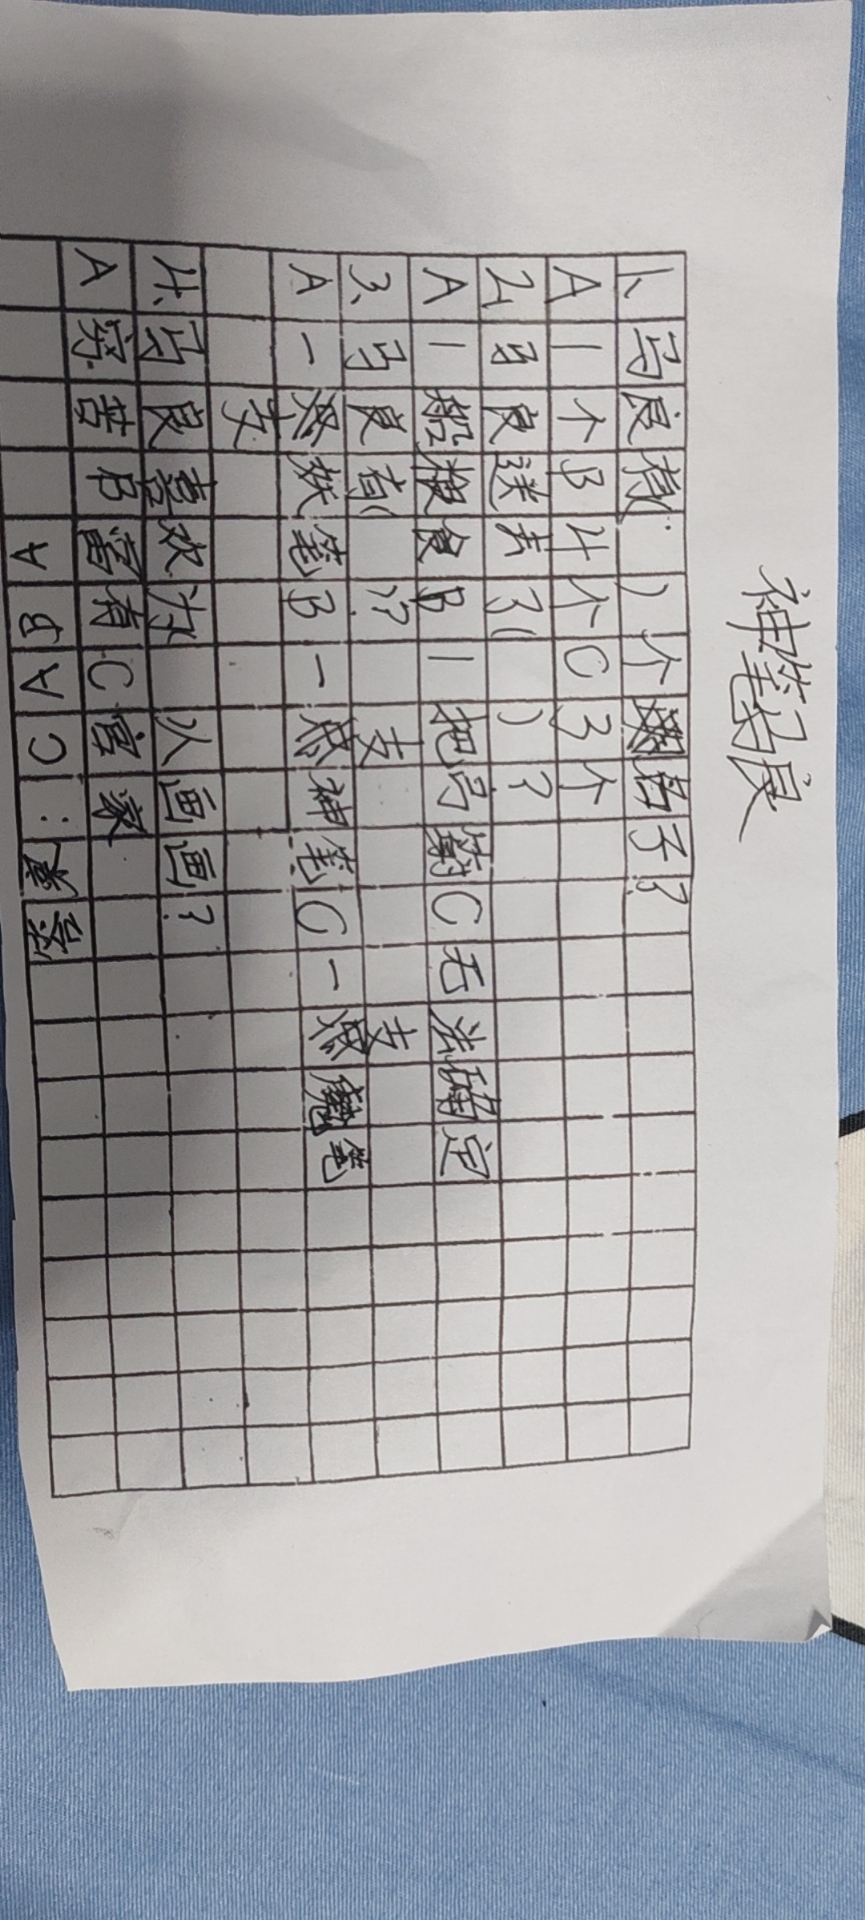 神笔马良
1、马良有( )个名子?
A 1个 B 4个 C 3个
2、马良送去了( )?
A 1船粮食 B 1把弓箭 C 无法确定
3、马良有( )?
支 支
A 一 妖笔 B 一 神笔 C 一 魔笔
支
4、马良喜欢为 人画画?
A 穷苦 B 富有 C 官家
A B A C : 案答